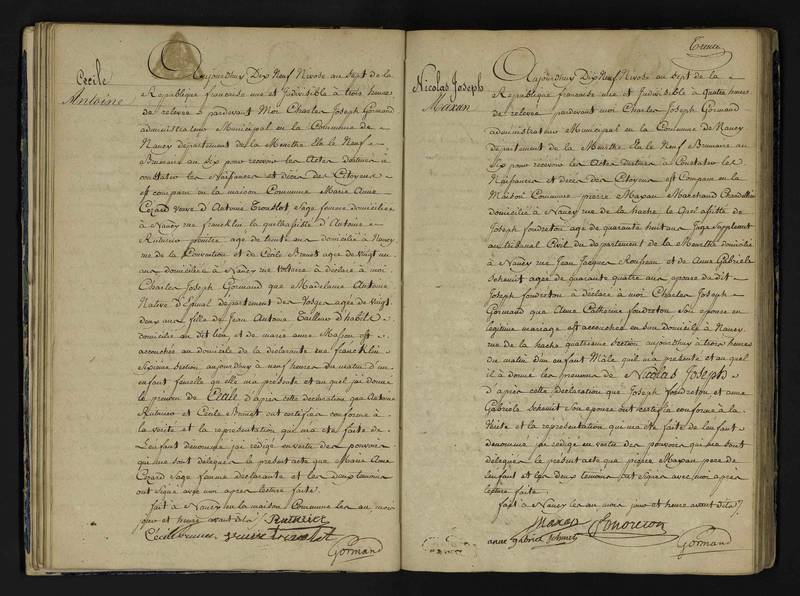 Cecile
Antoine
Aujourdhuy Dix Neuf Nivose an Sept de la
Republique francaise une et Indivisible à trois heures
de relevée pardevant Moi Charles Joseph Gormand
administrateur Municipal en la Commune de
Nancy département de la Meurthe Elu le Neuf
Brumaire an Six pour recevoir les Actes destinés à
constater les Naissances et décès des Citoyens
est comparu en la maison Commune Marie Anne
Cezard veuve d'Antoine Troublot Sage femme domiciliée
à Nancy rue francklin laquelle assistée d'Antoine
peintre agé de trente ans domicilié à Nancy
rue de la Convention et de Cecile Brunet agée de vingt un
ans domiciliée à Nancy rue voltaire à déclaré à moi
Charles Joseph Gormand que Madelaine Antoine
Native d'Epinal Département des Vosges agée de vingt
deux ans fille de Jean Antoine Tailleur d'habits
domicilié au dit lieu et de marie anne Masson est
accouchée au domicile de la déclarante rue francklin
Sixieme Section aujourdhuy à neuf heures du matin d'un
enfant femelle qu'elle ma présenté et auquel jai donné
le prenom de Cecile d'après cette déclaration que Antoine
et Cecile Brunet ont certifiée conforme à
la verité et la représentation qui ma été faite de
L'enfant dénommé jai rédigé en vertu des pouvoirs
qui me sont délégués le présent acte que Marie Anne
Cezard Sage femme déclarante et les deux temoins
ont Signé avec moi après lecture faite
fait à Nancy en la maison Commune les an mois
jour et heure avant dits
Cecile Brunet veuve troublot
Gormand
Nicolas Joseph
Maxan
Aujourdhuy Dix Neuf Nivose an Sept de la
Republique francaise une et Indivisible à quatre heures
de relevée pardevant moi Charles Joseph Gormand
administrateur Municipal en la Commune de Nancy
département de la Meurthe Elu le Neuf Brumaire an
Six pour recevoir les Actes destinés à Constater les
Naissances et décès des Citoyens est Comparu en la
Maison Commune pierre Maxan Marchand Chandellier
domicilié à Nancy rue de la hache lequel assisté de
Joseph fondreton agé de quarante huit ans Juge Suppleant
au tribunal Civil du departement de la Meurthe domicilié
à Nancy rue Jean Jacques Rousseau et de Anne Gabriele
Schemit agée de quarante quatre ans epouse du dit
Joseph fondreton à déclaré à moi Charles Joseph
Gormand que Anne Catherine fondreton Son epouse en
légitime mariage est accouchée en Son domicile à Nancy
rue de la hache quatrieme Section aujourdhuy à trois heures
du matin d'un enfant Mâle quil ma présenté et auquel
il à donné les prenoms de Nicolas Joseph
d'après cette déclaration que Joseph fondreton et anne
Gabriele Schemit Son epouse ont certifié conforme à la
Verité et la représentation qui ma été faite de l'enfant
denommé jai rédigé en vertu des pouvoirs qui me sont
délégués le présent acte que pierre Maxan pere de
l'enfant et les deux temoins ont Signés avec moi après
lecture faite
fait à Nancy les an mois jour et heure avant dits
Maxan fondreton
anne Gabriele Schmit
Gormand